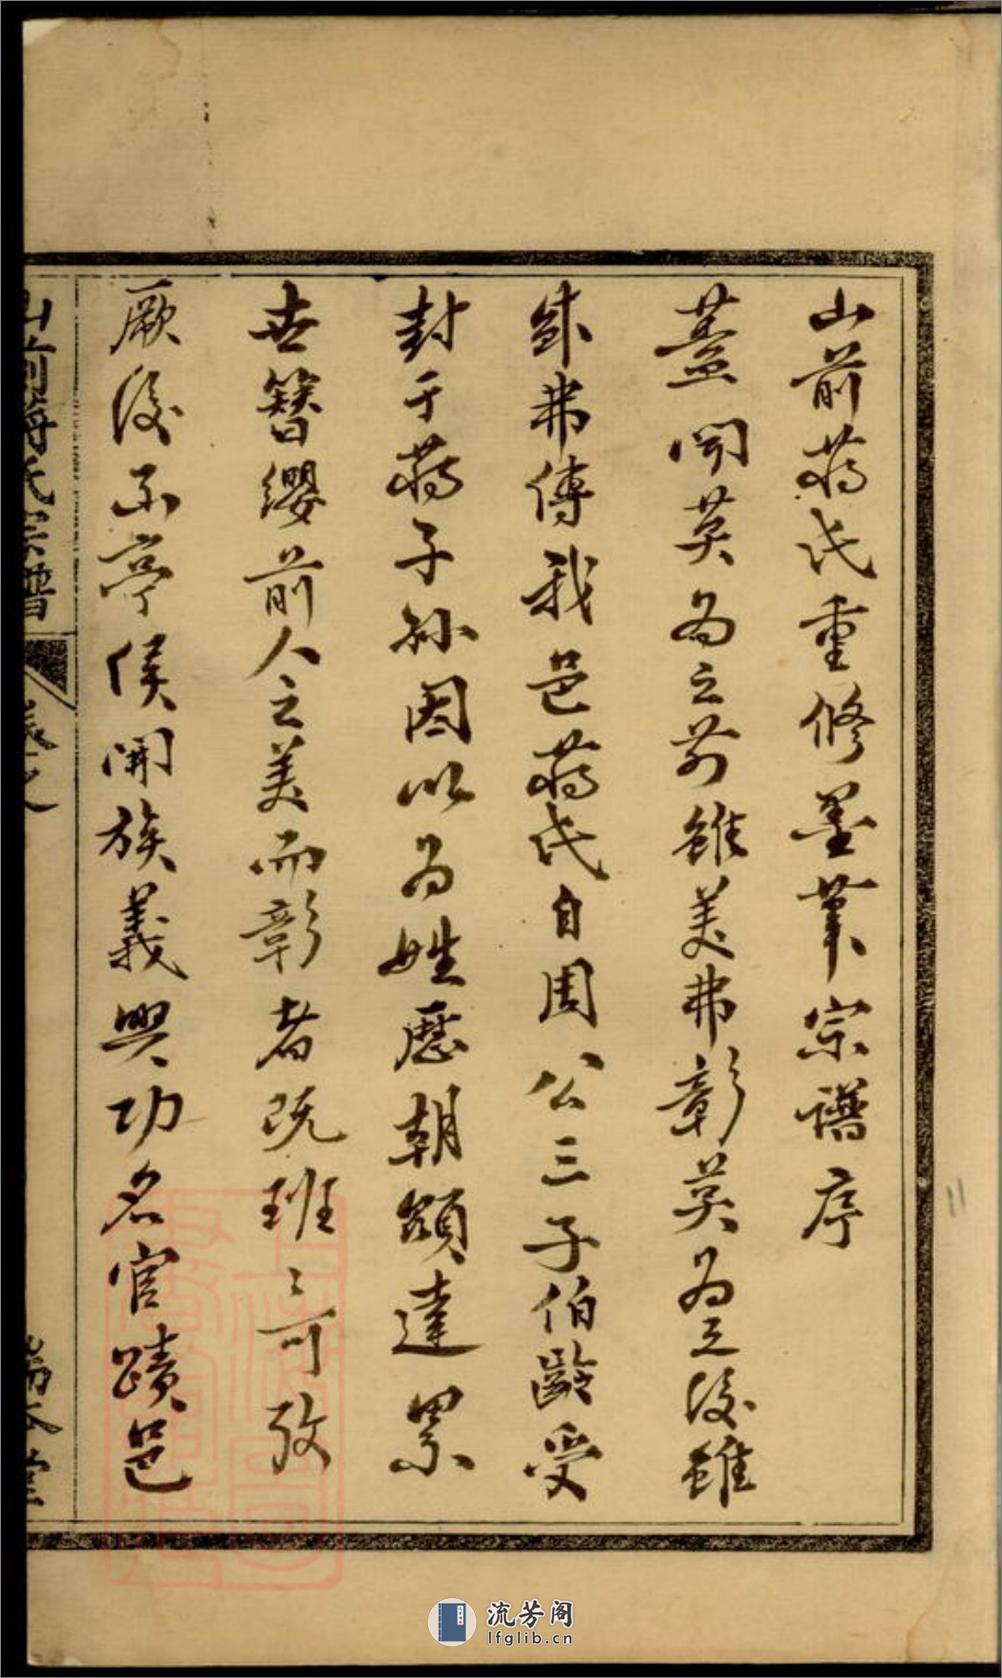 山前蔣氏重修墨葉宗譜序
蓋聞莫為之前雖美弗彰莫為之後雖
銶弗傳我邑蔣氏自周公三子伯齡受
封于蔣子孫因以為姓歷朝顯達累
世簪纓前人之美而彰者既班〻可攷
厥後𠀚亭侯開族義興功名官蹟邑
山前蔣氏宗譜
卷之
流芳阁
lfglib.cn